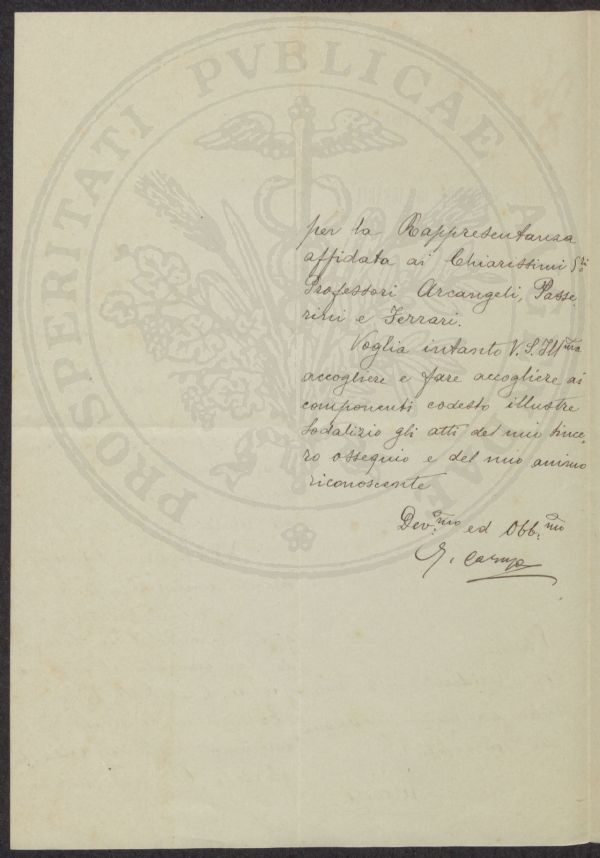 PROSPERITATI PVBLICAE
per la Rappresentanza
affidata ai Chiarissimi
Professori Arcangeli, Passe-
rini e Ferrari.
Voglia intanto V. S. Ill.ma
accogliere e fare accogliere ai
componenti codesto illustre
Sodalizio gli atti del mio since-
ro ossequio e del mio animo
riconoscente
Dev.mo ed Obb.mo